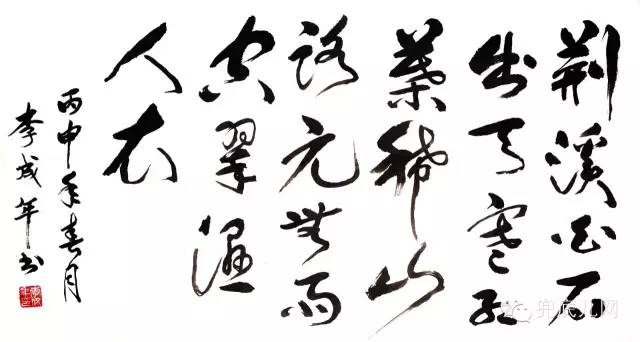 荆溪白石
出天寒红
葉稀山
路元無雨
空翠濕
人衣
丙申年春月
李成年书